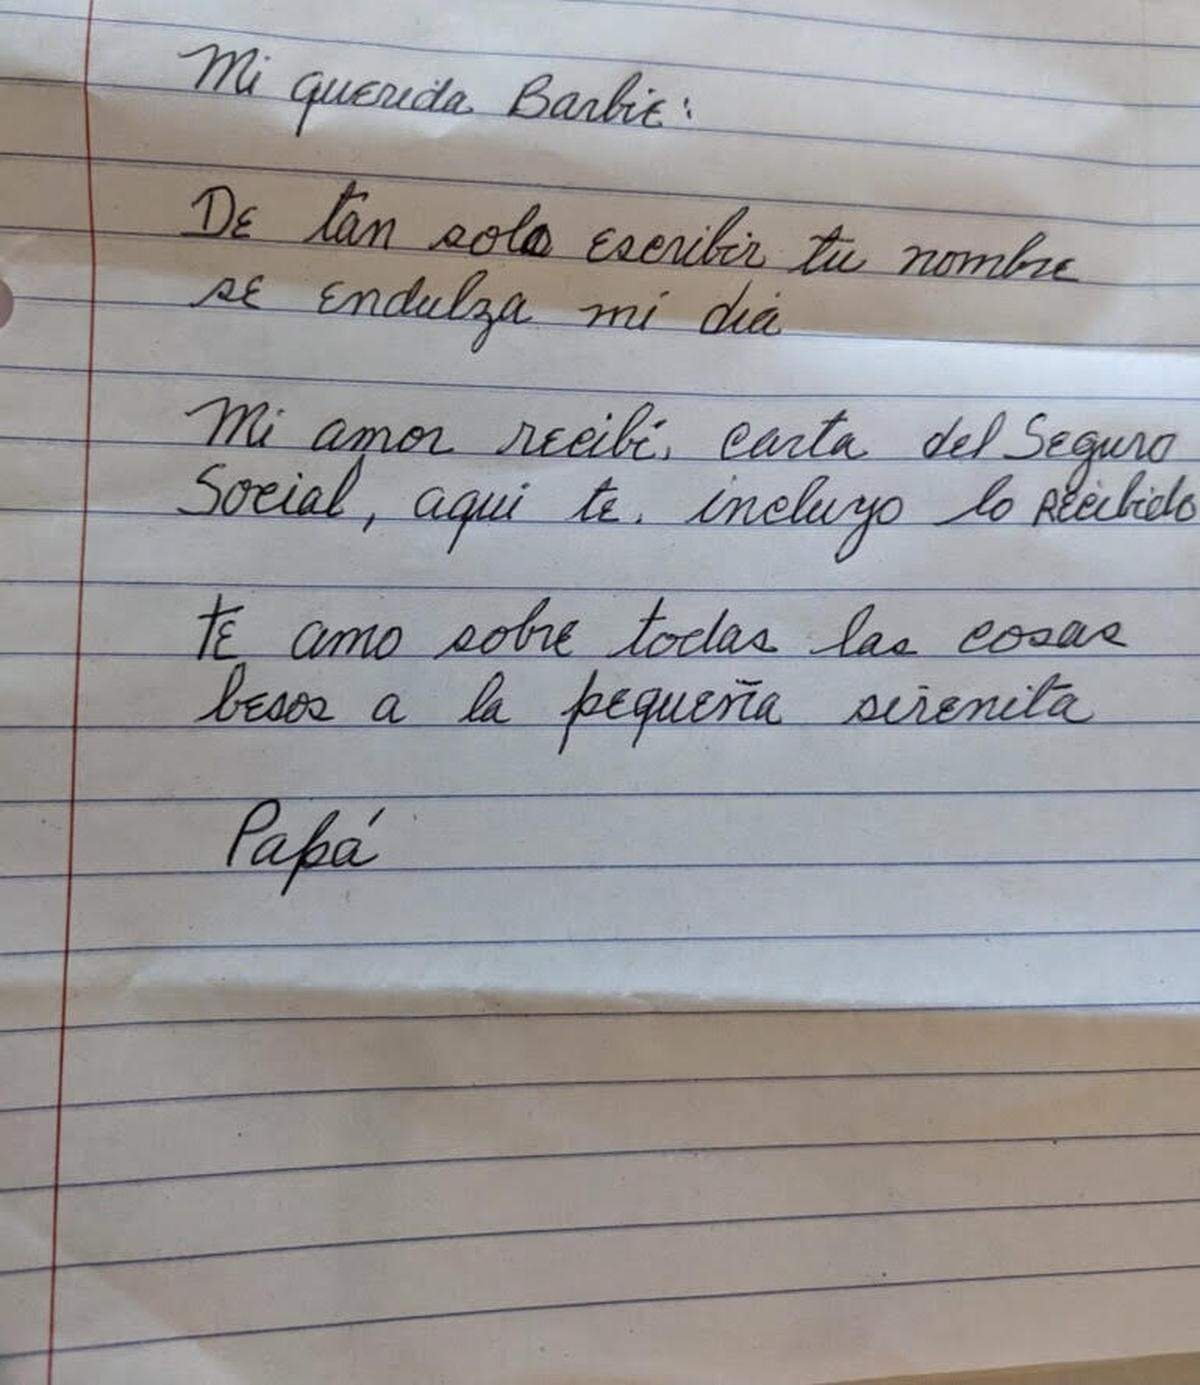 Mi querida Barbie:
De tan solo escribir tu nombre
se endulza mi día
Mi amor recibí, carta del Seguro
Social, aqui te. incluyo lo recibido
Te amo sobre todas las cosas
besos a la pequeña sirenita
Papá